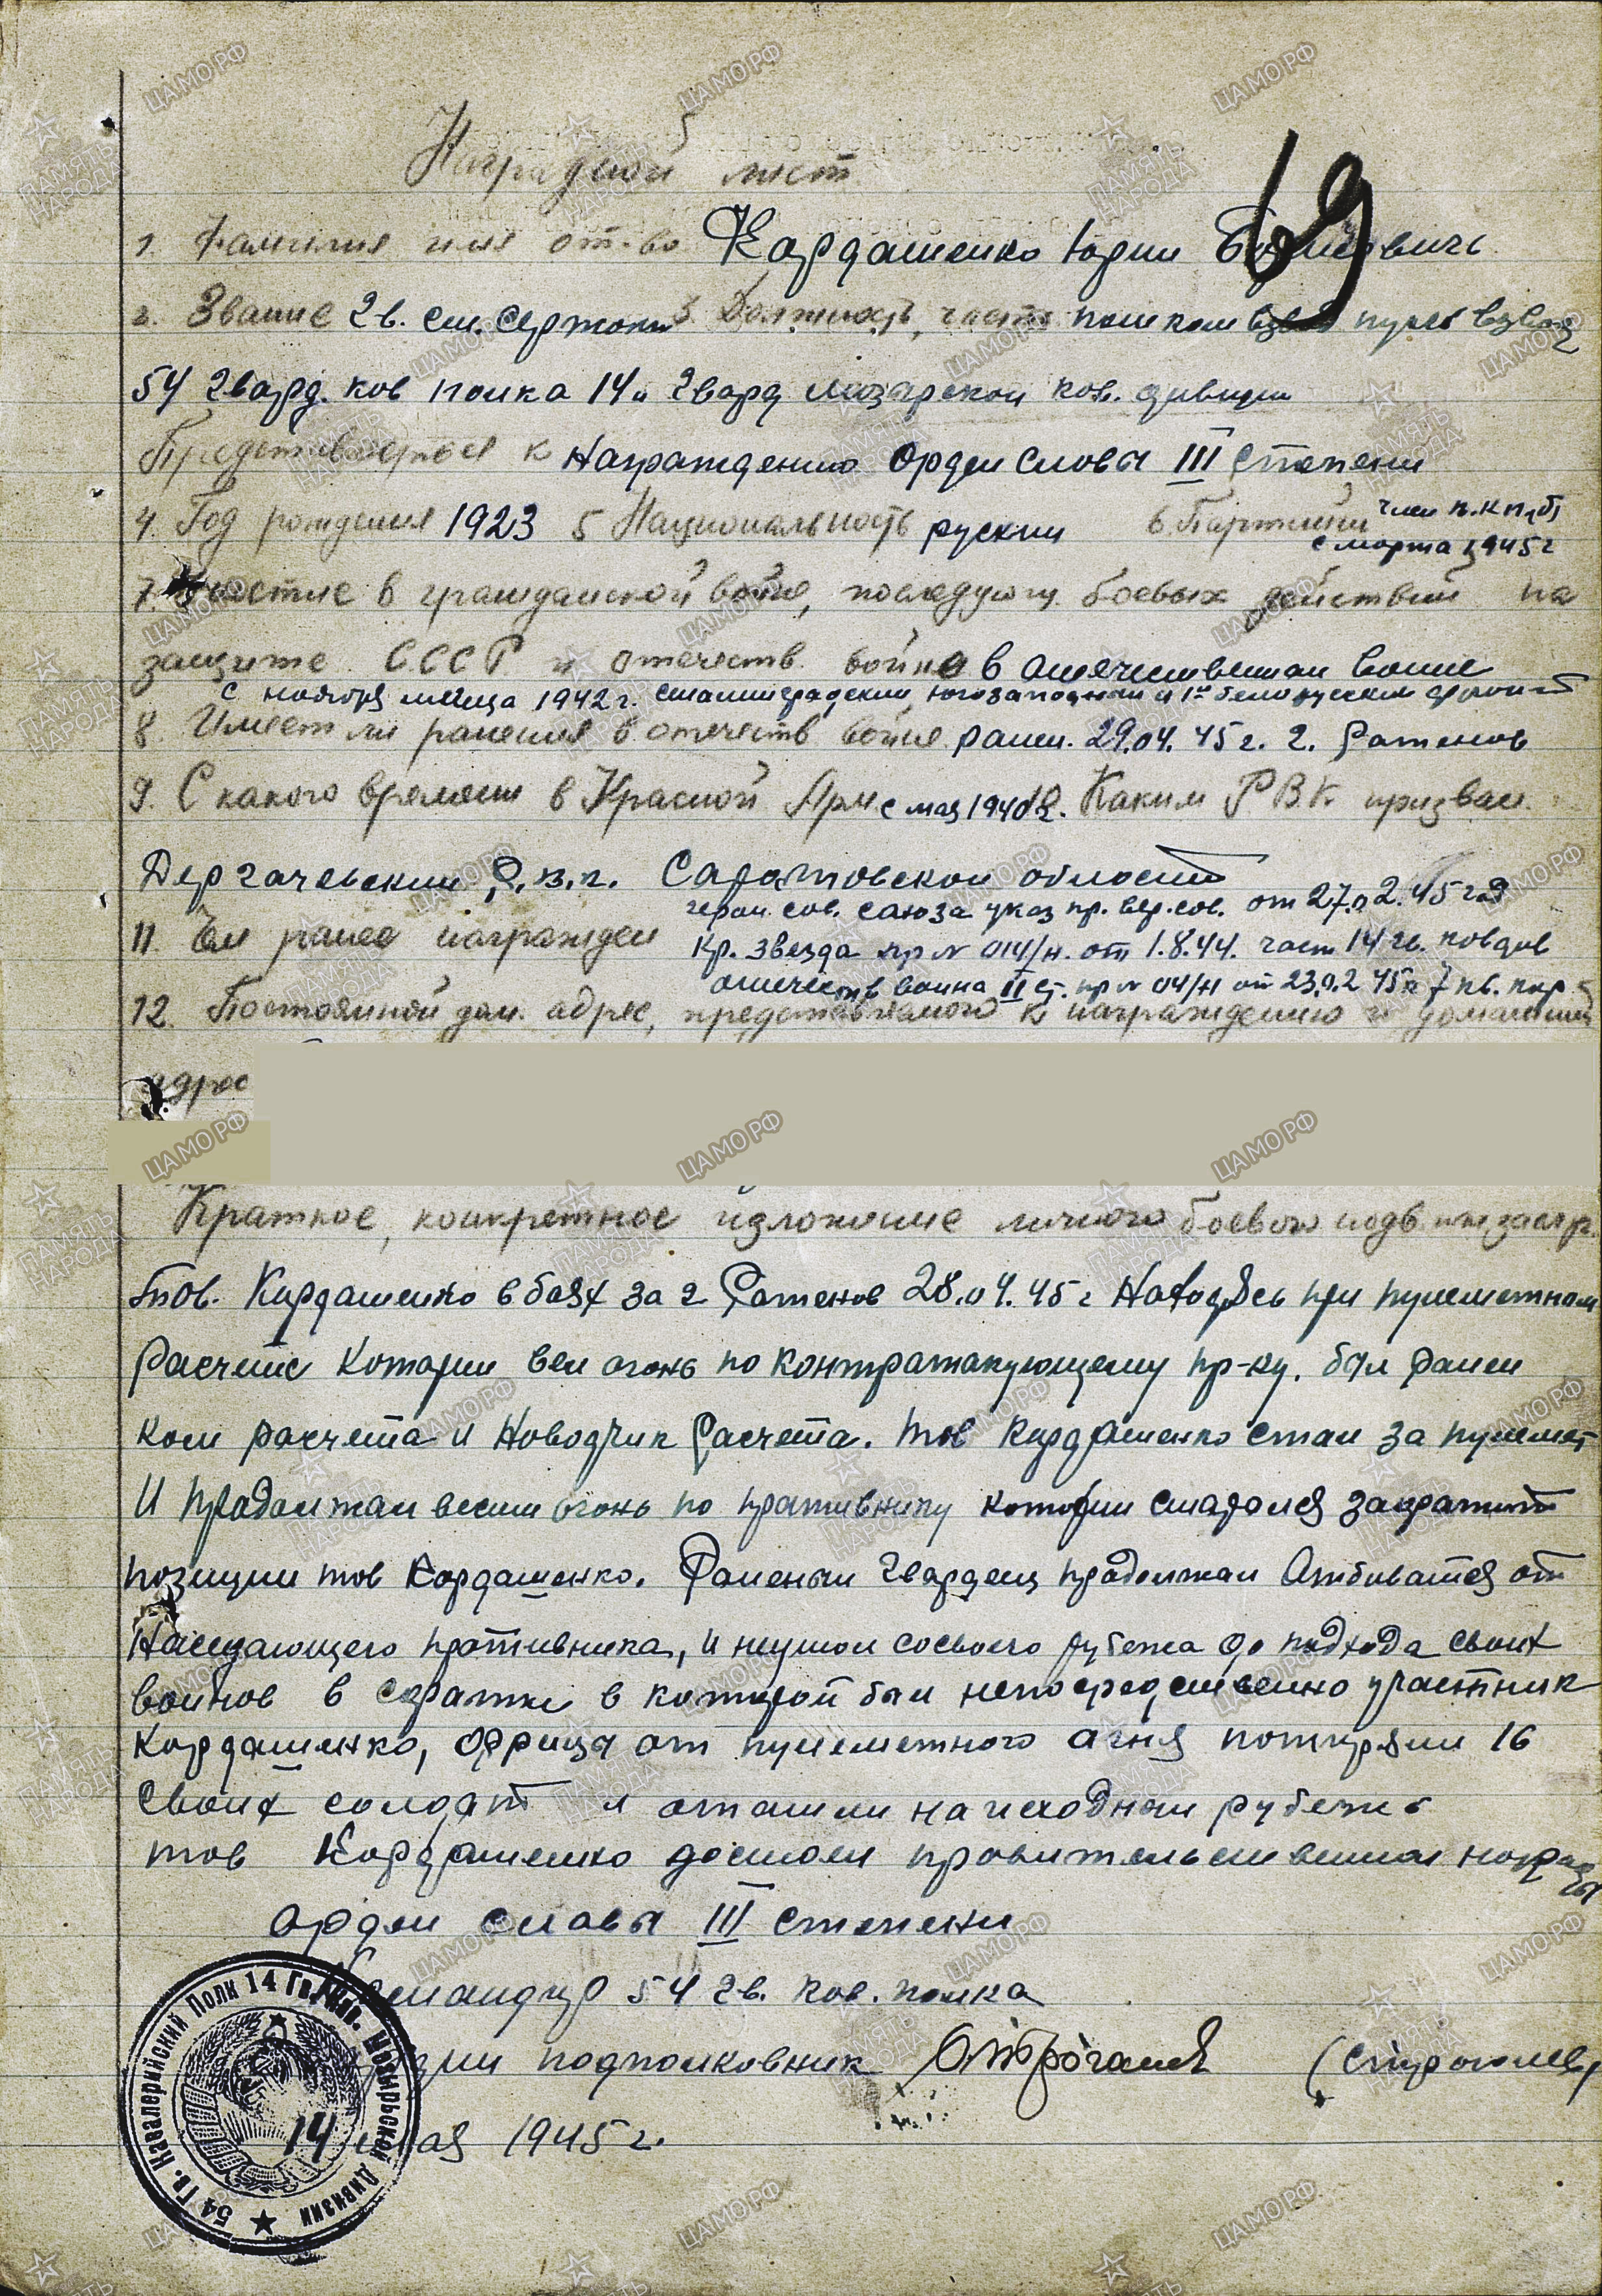 Наградной лист
69
1. Фамилия имя от-во Кардашенко Юрий Борисовичь
2. Звание Гв. ст. сержант 3. Должность, часть пом ком взвод пулем взвод
54 Гвард. кав полка 14й Гвард Мозырской кав. дивизии
Представляется к Награждению Орден Славы III Степени
4. Год рождения 1923 5 Национальность руский 6. Партийн член В.К.П.(б)
с марта 1945 г
7. Участие в гражданской войне, последующ. боевых действий по
защите СССР и отечеств. войне в отечественной войне
с ноября месеца 1942 г. сталинградский, югозападный и 1й белоруский фронт
8. Имеет ли ранения в отечеств войне ранен. 29.04.45 г. г. Ратенов
9. С какого времени в Красной Арм с мая 1940 г. Каким РВК призван.
Дергачевский Р.в.к. Саратовской области
герой. сов. союза указ пр. вер. сов. от 27.02.45 год
11. Чем ранее награжден Кр. звезда пр № 014/н. от 1.8.44. част 14 гв. кав див
отечеств воина II ст. пр № 04/н от 23.02 45г 7 кв. кор
12. Постоянной дом. адрес, представляемого к награждению и домашний
адрес
Краткое, конкретное изложение личного боевого подв.
Тов. Кардашенко в боях за г Ратенов 28.04.45 г Находясь при пулеметном
Расчете Который вел огонь по контратакующему пр-ку. был ранен
ком расчета и Наводчик Расчета. Тов Кардашенко стал за пулемет
И прадолжал вести огонь по пративнику который старался захратит
позиции тов Кардашенко. Раненый Гвардеец прадолжал Атбиватся от
Наседающего противника, и неушол сосвоего рубежа до подхода своих
воинов в схратки в которой был непосредственно участник
Кардашенко, Фрицы от пулеметного агня потиряли 16
Своих солдат и аташли на исходный рубеж
тов Кардашенко достоен правительственной награды
Орден Славы III степени
Командир 54 гв. кав. полка
Гвардии подполковник (Строгалев)
14 мая 1945 г.
54 Гв. Кавалерийский Полк 14 Гв. Кав. Мозырьской Дивизии
ЦАМО РФ
ПАМЯТЬ НАРОДА